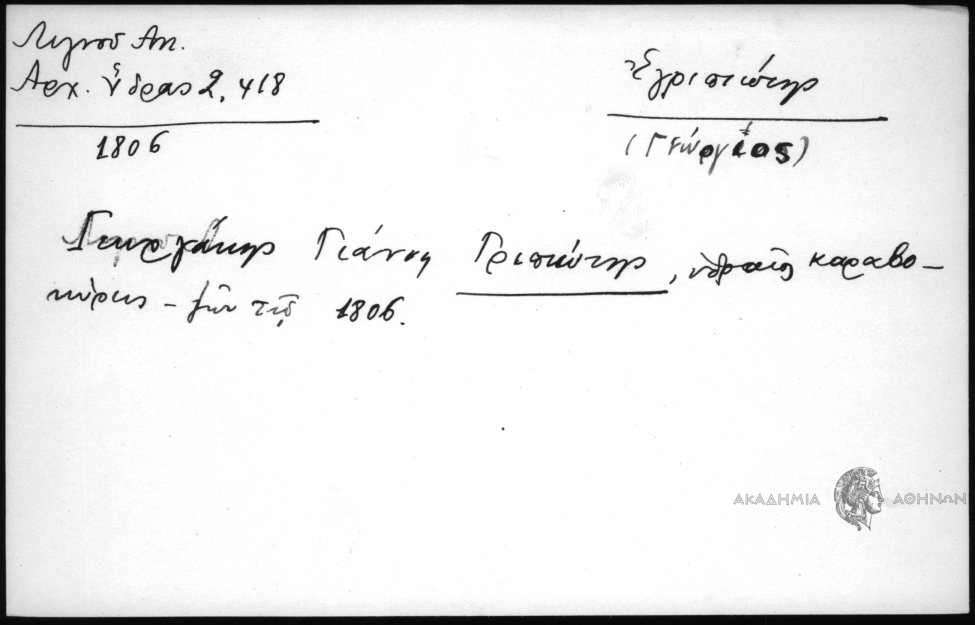 Λιγνοῦ Ἀπ.
Ἀρχ. Ὕδρας 2, 418
1806
Ἐγριπιώτης
(Γεώργιος)
Γεωργάκης Γιάννη Γριπιώτης, υδραῖος καραβο-
κύρης -
1806.
ΑΚΑΔΗΜΙΑ ΑΘΗΝΩΝ